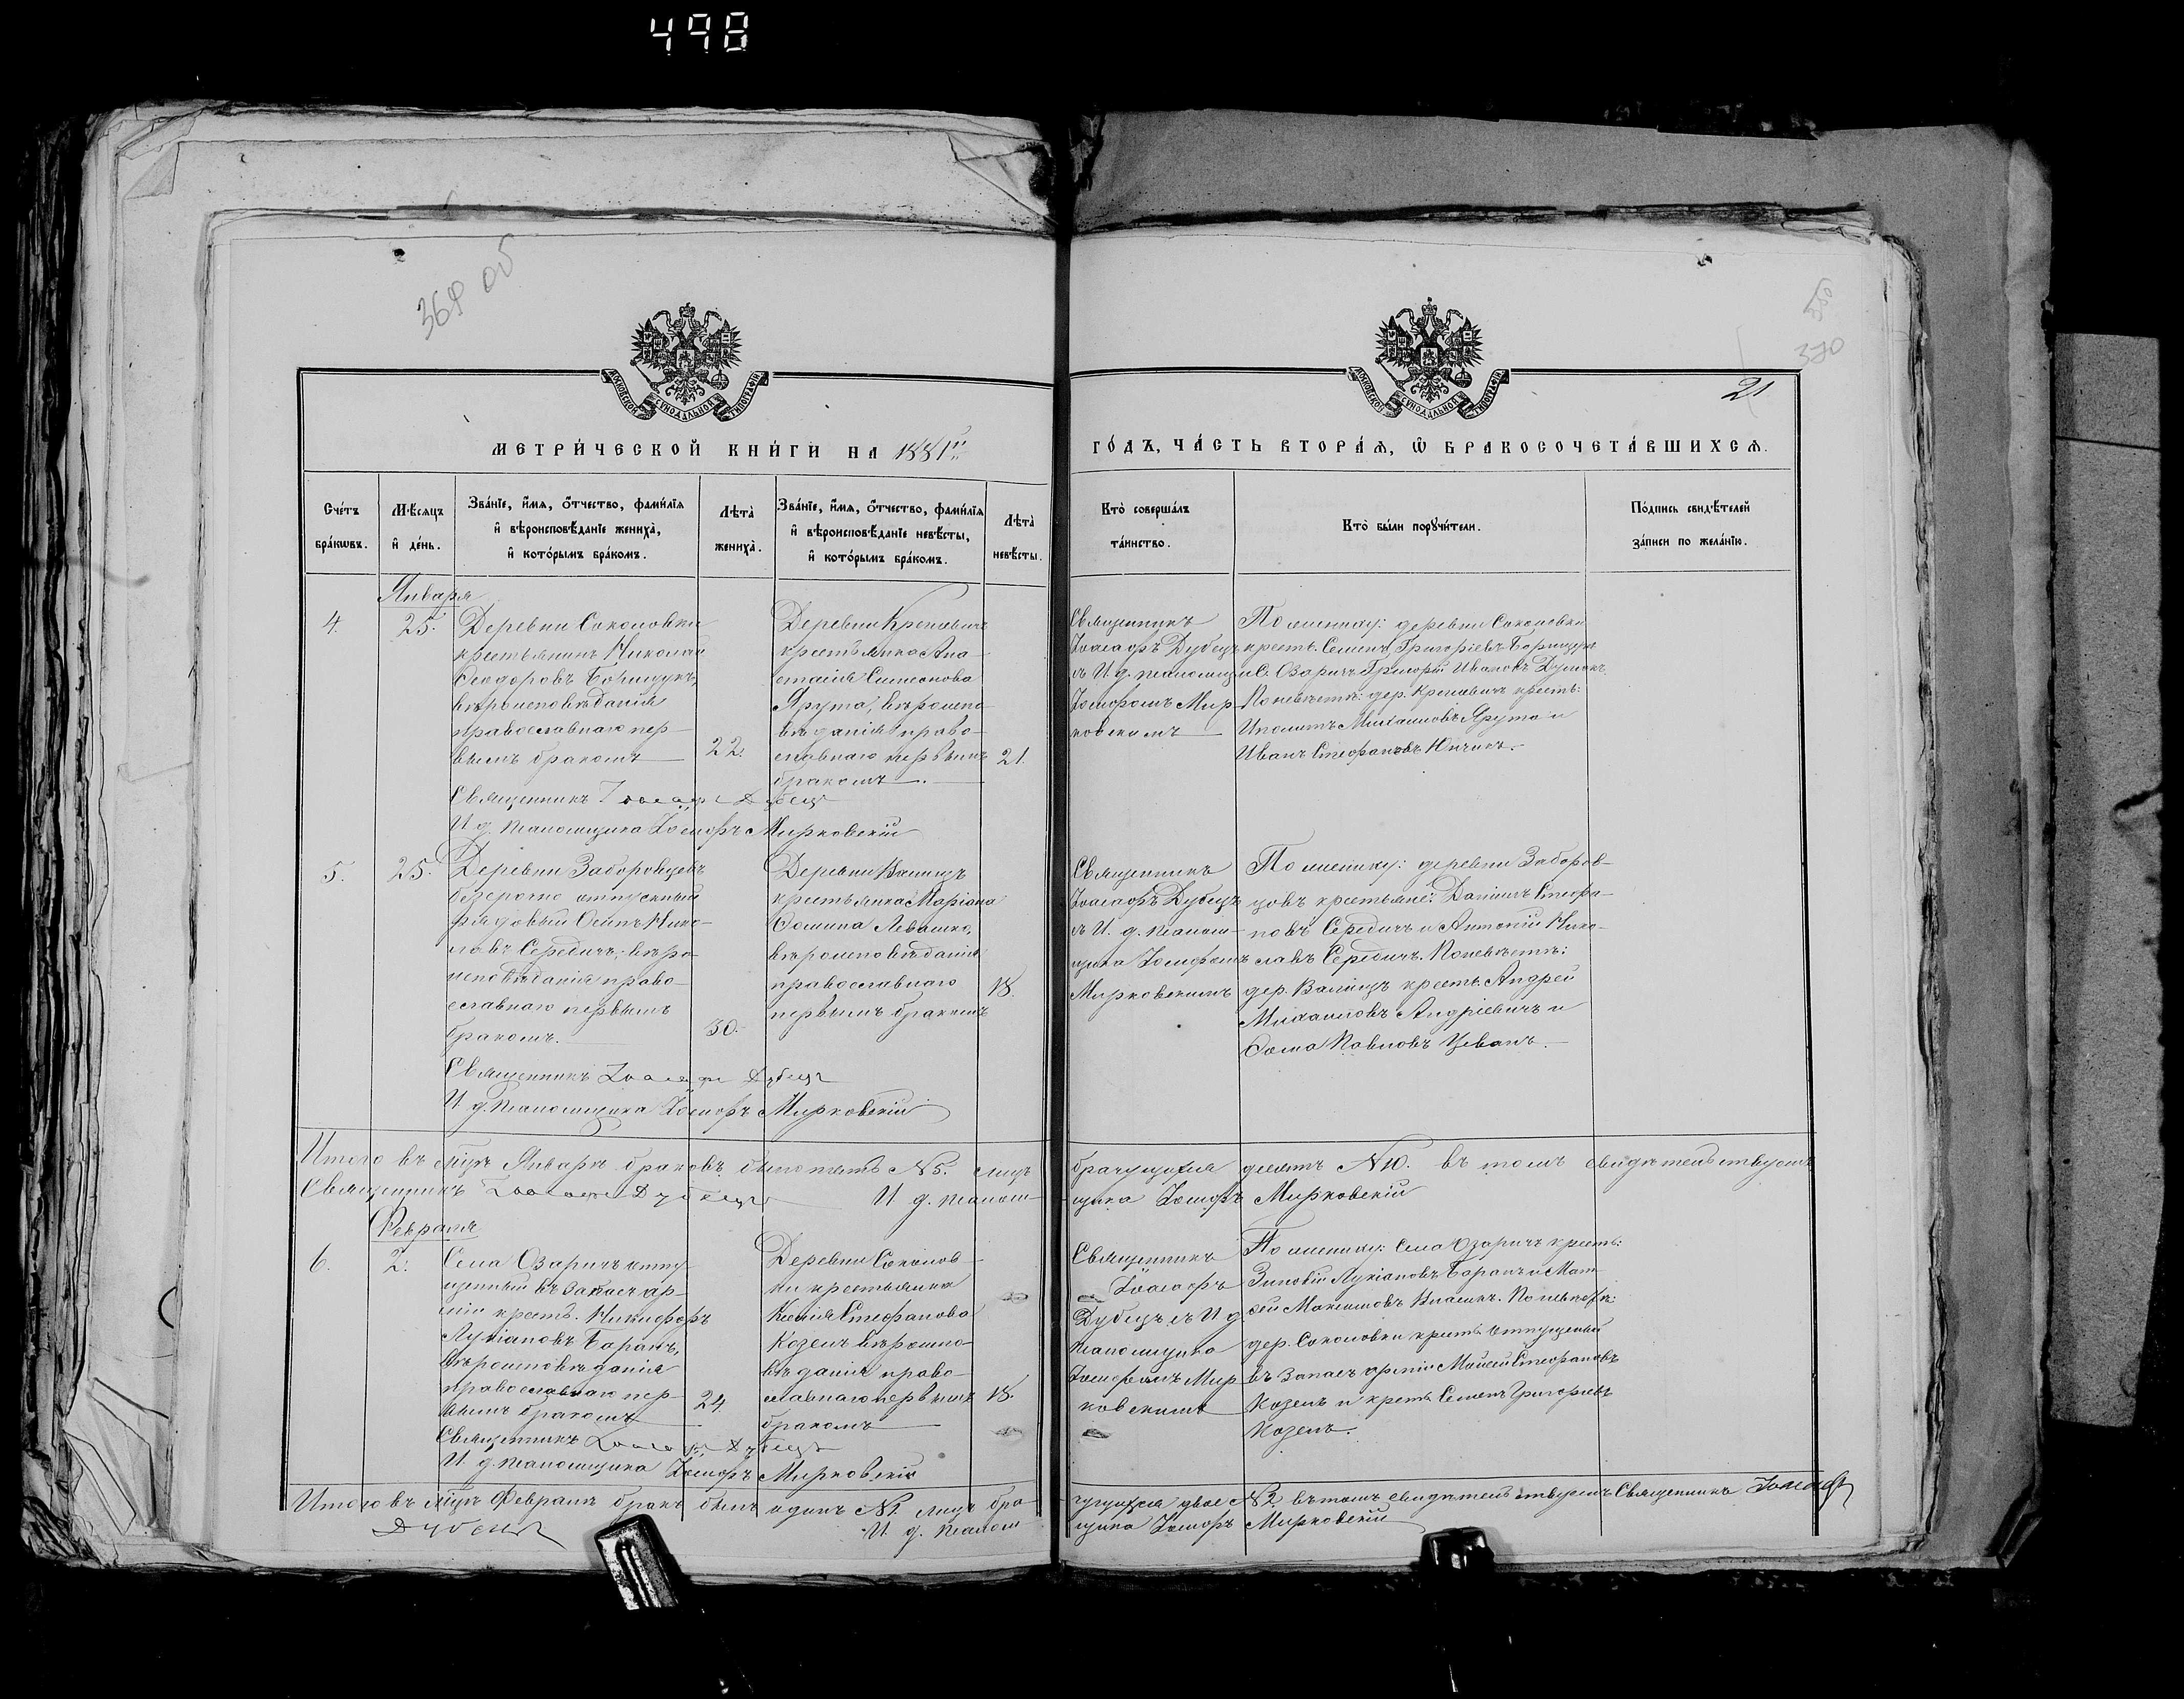 498
369 об
350
370
21
МОСКОВСКОЙ СѴНОДАЛЬНОЙ ТИПОГРАФІИ
МОСКОВСКОЙ СѴНОДАЛЬНОЙ ТИПОГРАФІИ
МЕТРИ́ЧЕСКОЙ КНИ́ГИ НА 1881й
ГО́ДЪ, ЧА́СТЬ ВТОРА́Ѧ, Ѡ БРАКОСОЧЕТА́ВШИХСѦ.
Сче́тъ
бра́кѡвъ.
Мѣ́сѧцъ
и҆ де́нь.
Зва́нїе, и҆́мѧ, о҆́тчество, фами́лїѧ
и҆ вѣроисповѣ́данїе жениха̀,
и҆ кото́рымъ бра́комъ.
Лѣ́та̀
жениха̀.
Зва́нїе, и҆́мѧ, о҆́тчество, фами́лїѧ
и҆ вѣроисповѣ́данїе невѣ́сты,
и҆ кото́рымъ бра́комъ.
Лѣ́та̀
невѣ́сты.
Кто̀ соверша́лъ
та́инство.
Кто̀ бы́ли порꙋчи́тели.
По́дпись свидѣ́телей
за́писи по жела́нїю.
Января
4.
25.
Деревни Соколовки
крестьянинъ Николай
Ѳеодоровъ Борищукъ,
вѣроисповѣданія
православнаго пер-
вымъ бракомъ
22.
Деревни Кремевичъ
крестьянка Ана-
стасія Симеонова
Ярута, вѣроиспо-
вѣданія право-
славнаго первымъ
бракомъ.
21.
Священникъ
Іоасафъ Дубецъ
съ И. д. псаломщ
Іосифомъ Мир-
ковскимъ
По жениху: деревни Соколовки
крест. Семенъ Григоріевъ Борищук
и С. Озаричъ Григорій Ивановъ
По невѣстѣ: дер. Кремевичъ крестъ:
Иполитъ Михаиловъ Ярута и
Иванъ Стефановъ
Священникъ Іоасафъ Дубецъ
И д. псаломщика Іосифъ Мирковскій
5.
25.
Деревни Заборовцевъ
безсрочно отпускный
рядовый Осипъ Нико-
лаевъ Середичъ; вѣро
исповѣданія право-
славнаго первымъ
бракомъ.
30.
Деревни Валищъ
крестьянка Маріана
Ѳомина Левошко,
вѣроисповѣданія
православнаго
первымъ бракомъ
18.
Священникъ
Іоасафъ Дубецъ
съ И. д. псалом-
щика Іосифомъ
Мирковскимъ
По жениху: деревни Заборов-
цовъ крестьяне: Даніилъ Стефа-
новъ Середичъ и Антоній Нико-
лаевъ Середичъ. По невѣстѣ:
дер. Валищъ крестъ. Андрей
Михаиловъ Андріевичъ и
Ѳома Павловъ Цеванъ.
Священникъ Іоасафъ Дубецъ
И. д. псаломщика Іосифъ Мирковскій
Итого въ м-цѣ Январѣ браковъ было пять №5. лицъ брачущихся десять №10. въ томъ свидѣтельствуемъ
Священникъ Іоасафъ Дубецъ И д. псалом-
щика Іосифъ Мирковскій
Февраля
6.
2.
Села Озаричъ отпу
щенный въ Запасъ ар-
міи крестъ. Никифоръ
Лукіановъ Баранъ,
вѣроисповѣданія
православнаго пер-
вымъ бракомъ
24
Деревни Соколов-
ки крестьянка
Ксенія Стефанова
Козелъ вѣроиспо-
вѣданія право-
славнаго первымъ
бракомъ
18.
Священникъ
Іоасафъ
Дубецъ съ И д.
псаломщика
Іосифомъ Мир
ковскимъ
По жениху: Села Озаричъ крестъ:
Зиновій Лукіановъ Баранъ и Мат-
ѳей Максимовъ По невѣстѣ:
дер. Соколовки крестъ. отпущеный
въ Запасъ арміи Моисей Стефановъ
Козелъ и крестъ Семенъ Григоріевъ
Козелъ.
Священникъ Іоасафъ Дубецъ
И д. псаломщика Іосифъ Мирковскій
Итого въ м-цѣ Февралѣ бракъ былъ одинъ №1. лицъ бра-
чущихся двое №2. въ томъ свидѣтельствуемъ Священникъ Іоасафъ
Дубецъ
И д. псалом
щика Іосифъ Мирковскій